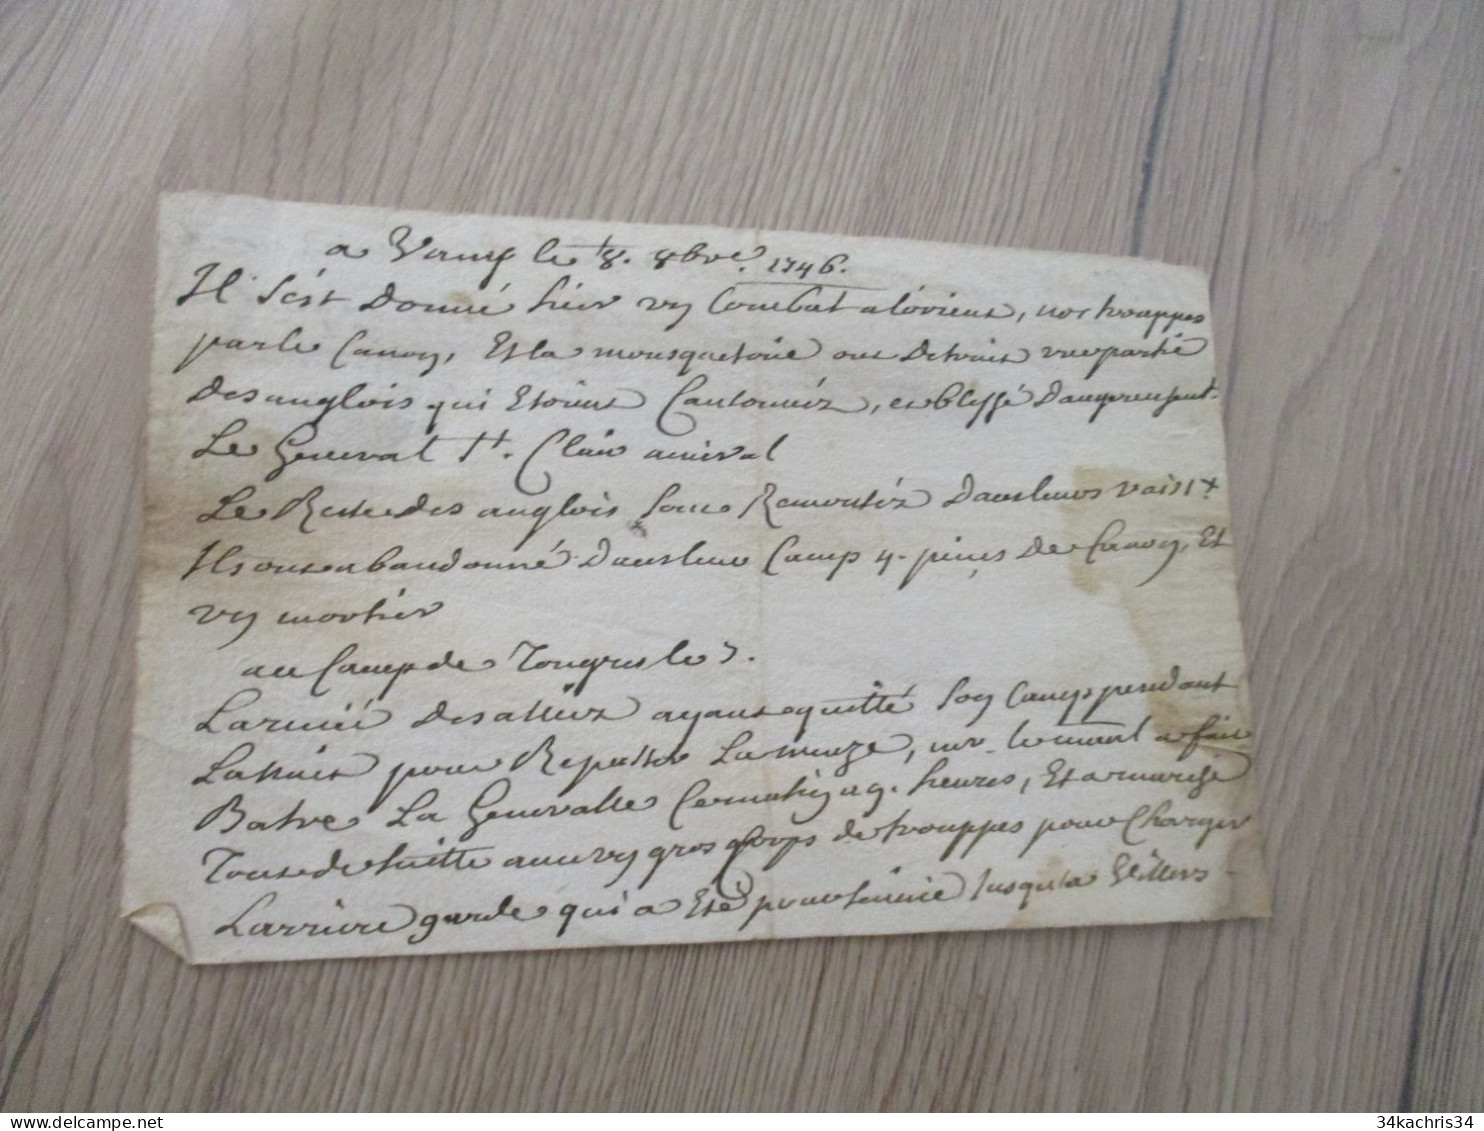 a Vanes le 8. 8bre. 1746.
Il s'est Donné hier un Combat alorient, nos trouppes
par le Canon, Et la mousqueterie ont Detruit une partie
Des anglois qui Etoient Cantonnéz, et blessé Dangereusemt.
Le General St. Clair amiral
Le Reste des anglois sont Remontéz Dans leurs vaissx
Ils ont abandonné Dans leur Camp 4. pieces De Canon, Et
un mortier
au Camp de Tongres le 7.
L'armée Des alliez ayant quitté son Camp pendant
La nuit pour Repasser La meuze, mr. le marl a fait
Batre La Generalle Ce matin a 9. heures, Et a marché
Tout de suitte avec un gros Corps de trouppes pour Charger
L'arriere garde qui a Eté poursuivie Jusqu'a
34kachris34